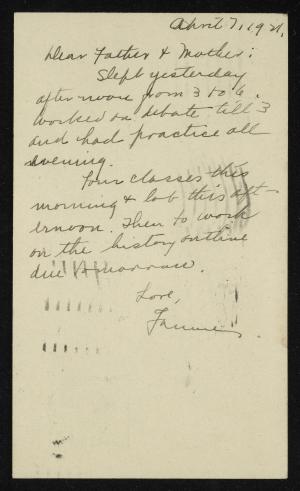 April 7, 1921.
Dear Father & Mother:
Slept yesterday
afternoon from 3 to 6.
Worked on debate till 3
and had practice all
evening.
Four classes this
morning & lab this aft-
ernoon. Then to work
on the history outline
due tomorrow.
Love,